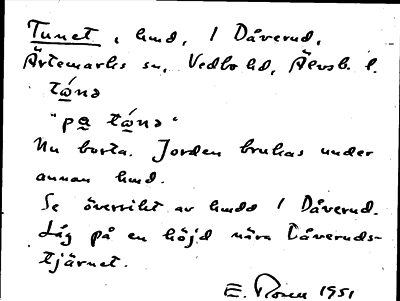 Tunet, hmd, 1 Dåverud,
Ärtemarks sn, Vedbo hd, Älvsb. l.
tώnə
"pa tώnə"
Nu borta. Jorden brukas under
annan hmd.
Se översikt av hmdd 1 Dåverud.
Låg på en höjd nära Dåveruds-
tjärnet.
E. Rosen 1951